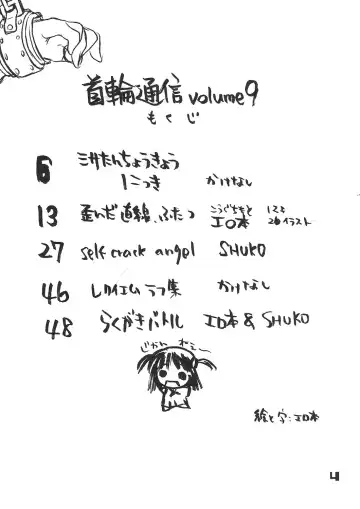 首輪通信 volume9
もくじ
6 ミサたんちょうきょう
にっき かけなし
13 歪んだ直線、ふたつ こうぐちもと
エロ本 26イラスト
27 self crack angel SHUKO
46 レクイエムラフ集 かけなし
48 らくがきバトル エロ本 & SHUKO
じかん ねぇー
絵と字:エロ本
4